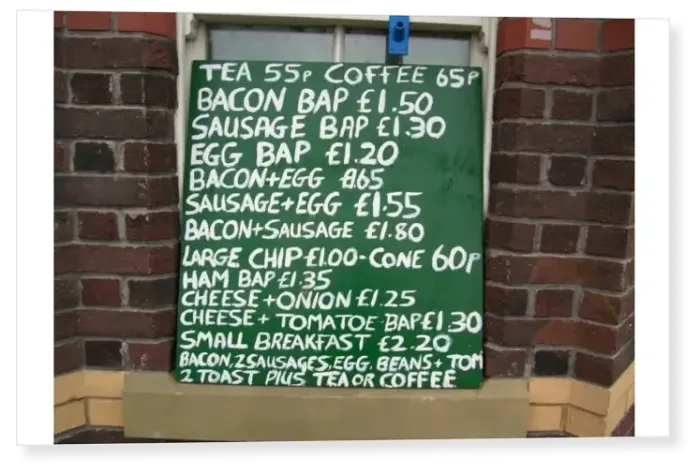 TEA 55P COFFEE 65P
BACON BAP £1.50
SAUSAGE BAP £1.30
EGG BAP £1.20
BACON+EGG £1.65
SAUSAGE+EGG £1.55
BACON+SAUSAGE £1.80
LARGE CHIP £1.00-CONE 60P
HAM BAP £1.35
CHEESE+ONION £1.25
CHEESE+ TOMATOE BAP £1.30
SMALL BREAKFAST £2.20
BACON, 2 SAUSAGES, EGG, BEANS+ TOM
2 TOAST PLUS TEA OR COFFEE